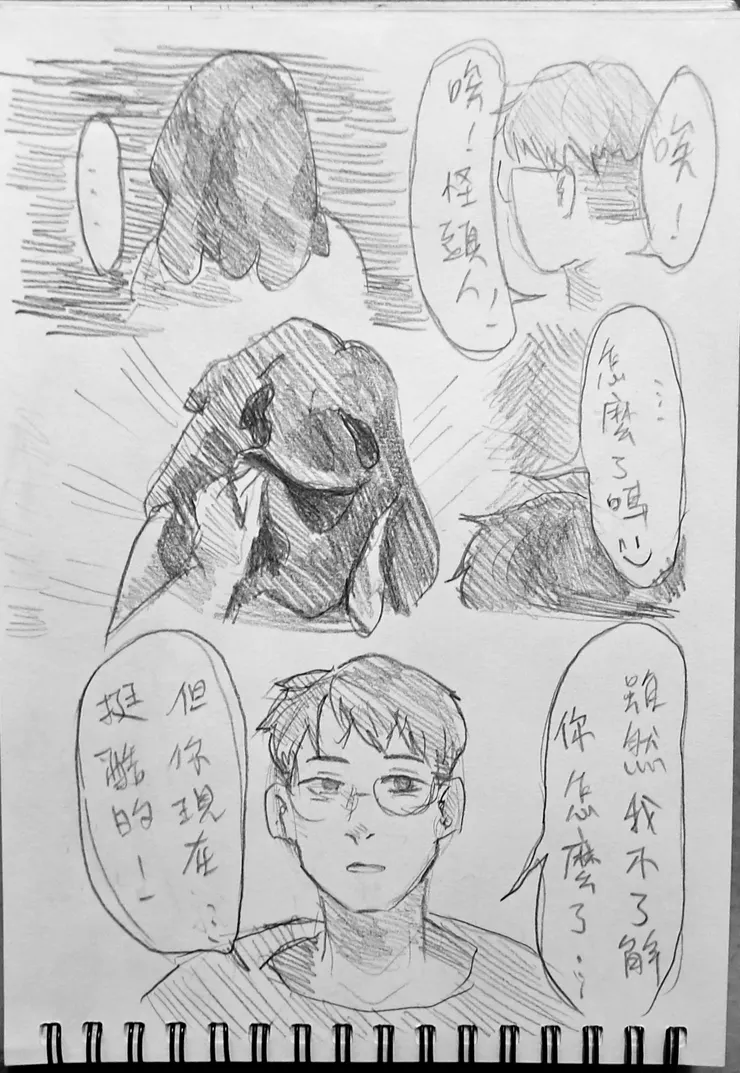 唉！
唉！怪頭人！
……
…怎麼了嗎
雖然我不了解
你怎麼了…
但你現在…
挺酷的！